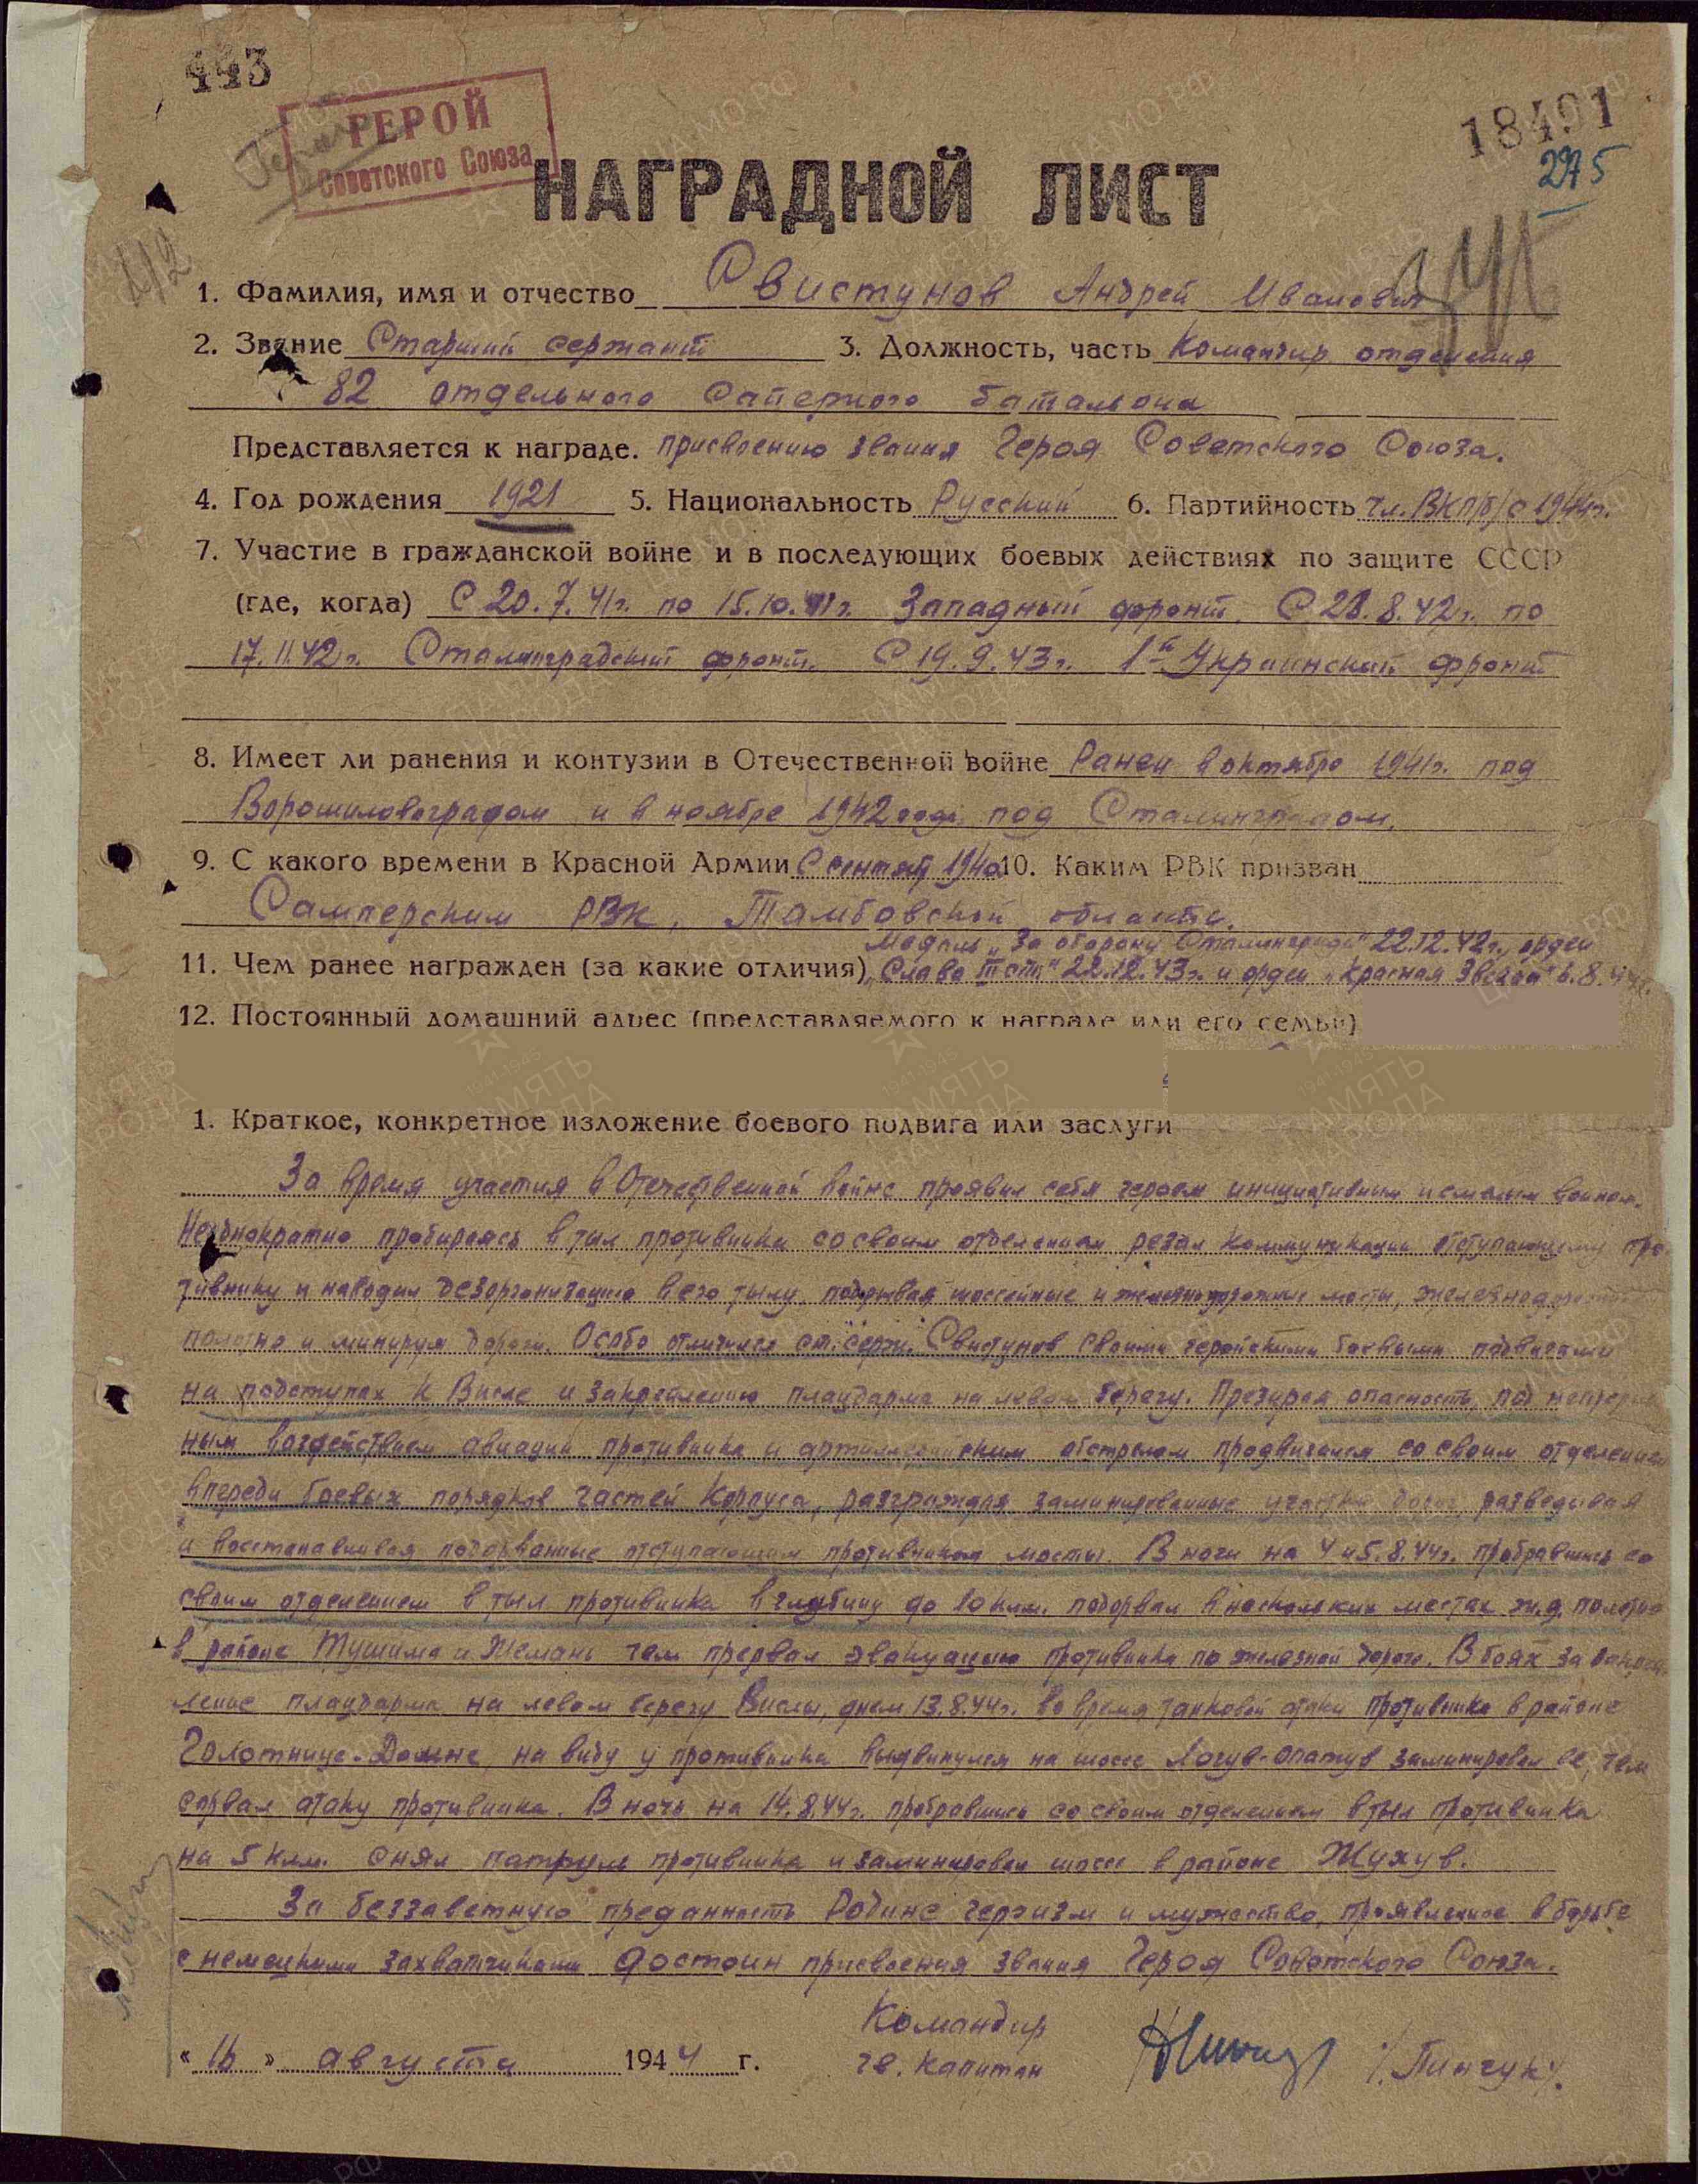 443
ГЕРОЙ
Советского Союза
18491
275
НАГРАДНОЙ ЛИСТ
1. Фамилия, имя и отчество Свистунов Андрей Иванович
2. Звание Старший сержант 3. Должность, часть Командир отделения
82 отдельного саперного батальона
Представляется к награде. присвоению звания Героя Советского Союза.
4. Год рождения 1921 5. Национальность Русский 6. Партийность чл. ВКП/б/ с 1944г.
7. Участие в гражданской войне и в последующих боевых действиях по защите СССР
(где, когда) С 20.7.41г. по 15.10.41г. Западный фронт. С 28.8.42г. по
17.11.42г. Сталинградский фронт. С 19.9.43г. 1й Украинский фронт
8. Имеет ли ранения и контузии в Отечественной войне Ранен в октябре 1941г. под
Ворошиловградом и в ноябре 1942 года под Сталинградом.
9. С какого времени в Красной Армии С сентяб 1940 10. Каким РВК призван
Самперским РВК, Тамбовской области.
Медаль „За оборону Сталинграда" 22.12.42г., орден
11. Чем ранее награжден (за какие отличия) „Слава III ст." 22.12.43г. и орден „Красная Звезда" 6.8.44г.
12. Постоянный домашний адрес (представляемого к награде или его семьи)
1. Краткое, конкретное изложение боевого подвига или заслуги
За время участия в Отечественной войне проявил себя героем инициативным и смелым воином.
Неоднократно пробираясь в тыл противника со своим отделением резал коммуникации отступающему про-
тивнику и наводил дезорганизацию в его тылу, подрывая шоссейные и железнодорожные мосты, железнодорожное
полотно и минируя дороги. Особо отличился ст. серж. Свистунов своими геройскими боевыми подвигами
на подступах к Висле и закреплению плацдарма на левом берегу. Презирая опасность, под непрерыв
ным воздействием авиации противника и артиллерийским обстрелом продвигался со своим отделением
впереди боевых порядков частей Корпуса, разграждая заминированные участки дорог, разведывая
и восстанавливая подорванные отступающим противником мосты. В ночи на 4 и 5.8.44г. пробравшись со
своим отделением в тыл противника в глубину до 10 клм. подорвал в нескольких местах ж.д. полотно
в районе Тушима и Жемань чем прервал эвакуацию противника по железной дороге. В боях за закреп-
ление плацдарма на левом берегу Вислы, днем 13.8.44г. во время танковой атаки противника в районе
Голотнице-Дольне, на виду у противника выдвинулся на шоссе Логув-Опатув заминировал ее, чем
сорвал атаку противника. В ночь на 14.8.44г. пробравшись со своим отделением в тыл противника
на 5 клм. снял патруль противника и заминировал шоссе в районе Жухув.
За беззаветную преданность Родине героизм и мужество, проявленное в борьбе
с немецкими захватчиками достоин присвоения звания Героя Советского Союза.
Командир
« 16 » августа 1944 г. гв. капитан /Пинчук/.